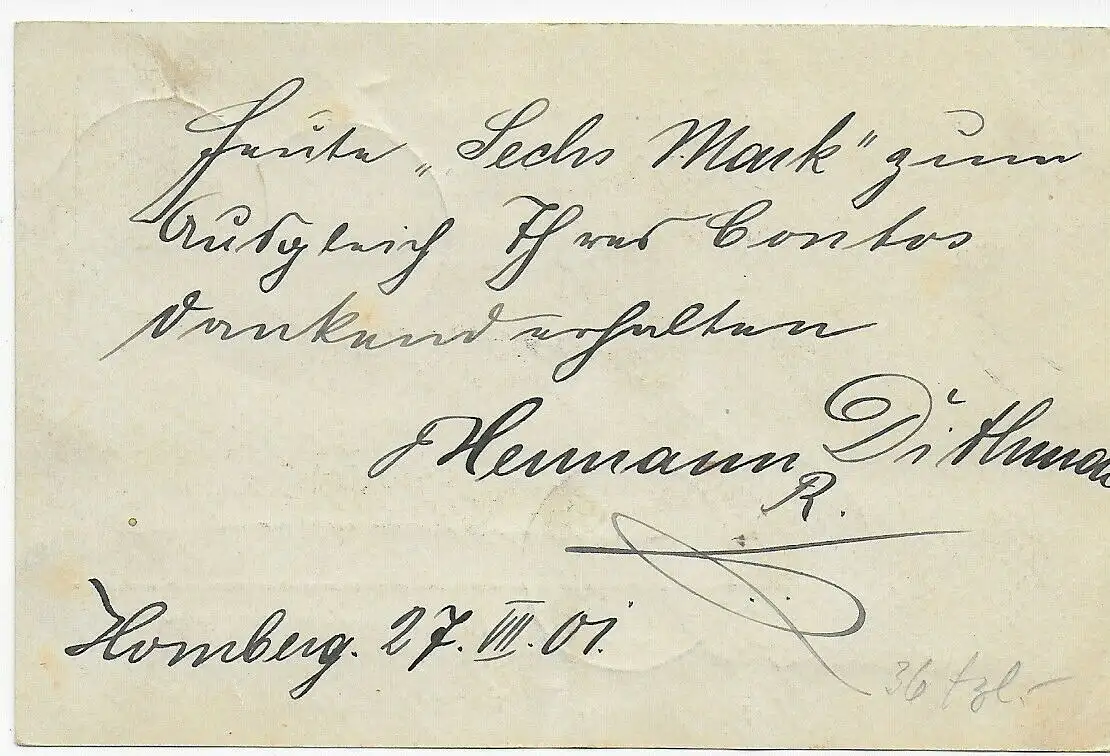 Heute „Sechs Mark" zum
Ausgleich Ihres Contos
dankend erhalten
Hermann Dithmar
R.
Homberg. 27. VIII. 01.
36